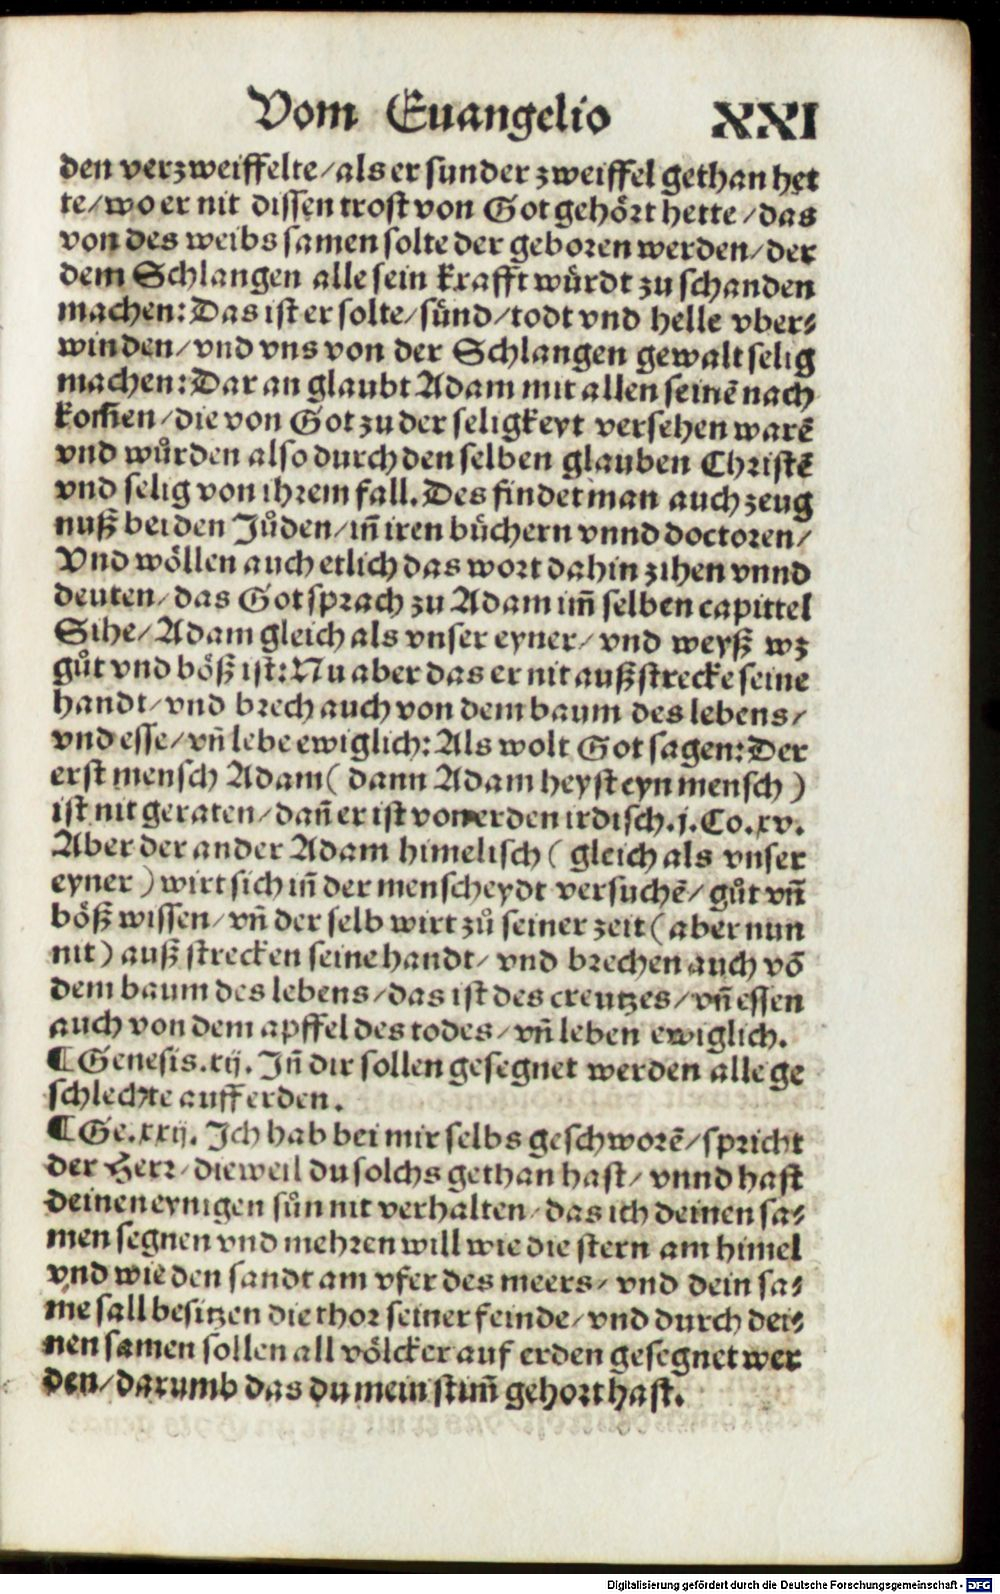 Vom Euangelio XXI
den verzweiffelte/als er sunder zweiffel gethan het
te/wo er nit dissen trost von Got gehört hette/das
von des weibs samen solte der geboren werden/der
dem Schlangen alle sein krafft würdt zu schanden
machen: Das ist er solte/sünd/todt vnd helle vber⸗
winden/vnd vns von der Schlangen gewalt selig
machen: Dar an glaubt Adam mit allen seinē nach
kom̃en/die von Got zu der seligkeyt versehen warē
vnd wůrden also durch den selben glauben Christē
vnd selig von ihrem fall. Des findet man auch zeug
nuß bei den Jůden/iñ iren büchern vnnd doctoren/
Vnd wöllen auch etlich das wort dahin zihen vnnd
deuten/das Got sprach zu Adam im̃ selben capittel
Sihe/Adam gleich als vnser eyner/vnd weyß wz
gůt vnd böß ist: Nu aber das er nit außstrecke seine
handt/vnd brech auch von dem baum des lebens/
vnd esse/vñ lebe ewiglich: Als wolt Got sagen: Der
erst mensch Adam (dann Adam heyst eyn mensch)
ist nit geraten/dañ er ist von erden irdisch. j. Co. xv.
Aber der ander Adam himelisch (gleich als vnser
eyner) wirt sich iñ der menscheydt versuchē/gůt vñ
böß wissen/vñ der selb wirt zů seiner zeit (aber nun
nit) auß strecken seine handt/vnd brechen auch vō
dem baum des lebens/das ist des creutzes/vñ essen
auch von dem apffel des todes/vñ leben ewiglich.
¶ Genesis. xij. Iñ dir sollen gesegnet werden alle ge
schlechte auff erden.
¶ Ge. xxij. Ich hab bei mir selbs geschworē/spricht
der Herr/dieweil du solchs gethan hast/vnnd hast
deinen eynigen sůn nit verhalten/das ich deinen sa⸗
men segnen vnd mehren will wie die stern am himel
vnd wie den sandt am vfer des meers/vnd dein sa⸗
me sall besitzen die thor seiner feinde/vnd durch dei⸗
nen samen sollen all völcker auf erden gesegnet wer
den/darumb das du mein stim̃ gehort hast.
Digitalisierung gefördert durch die Deutsche Forschungsgemeinschaft - DFG